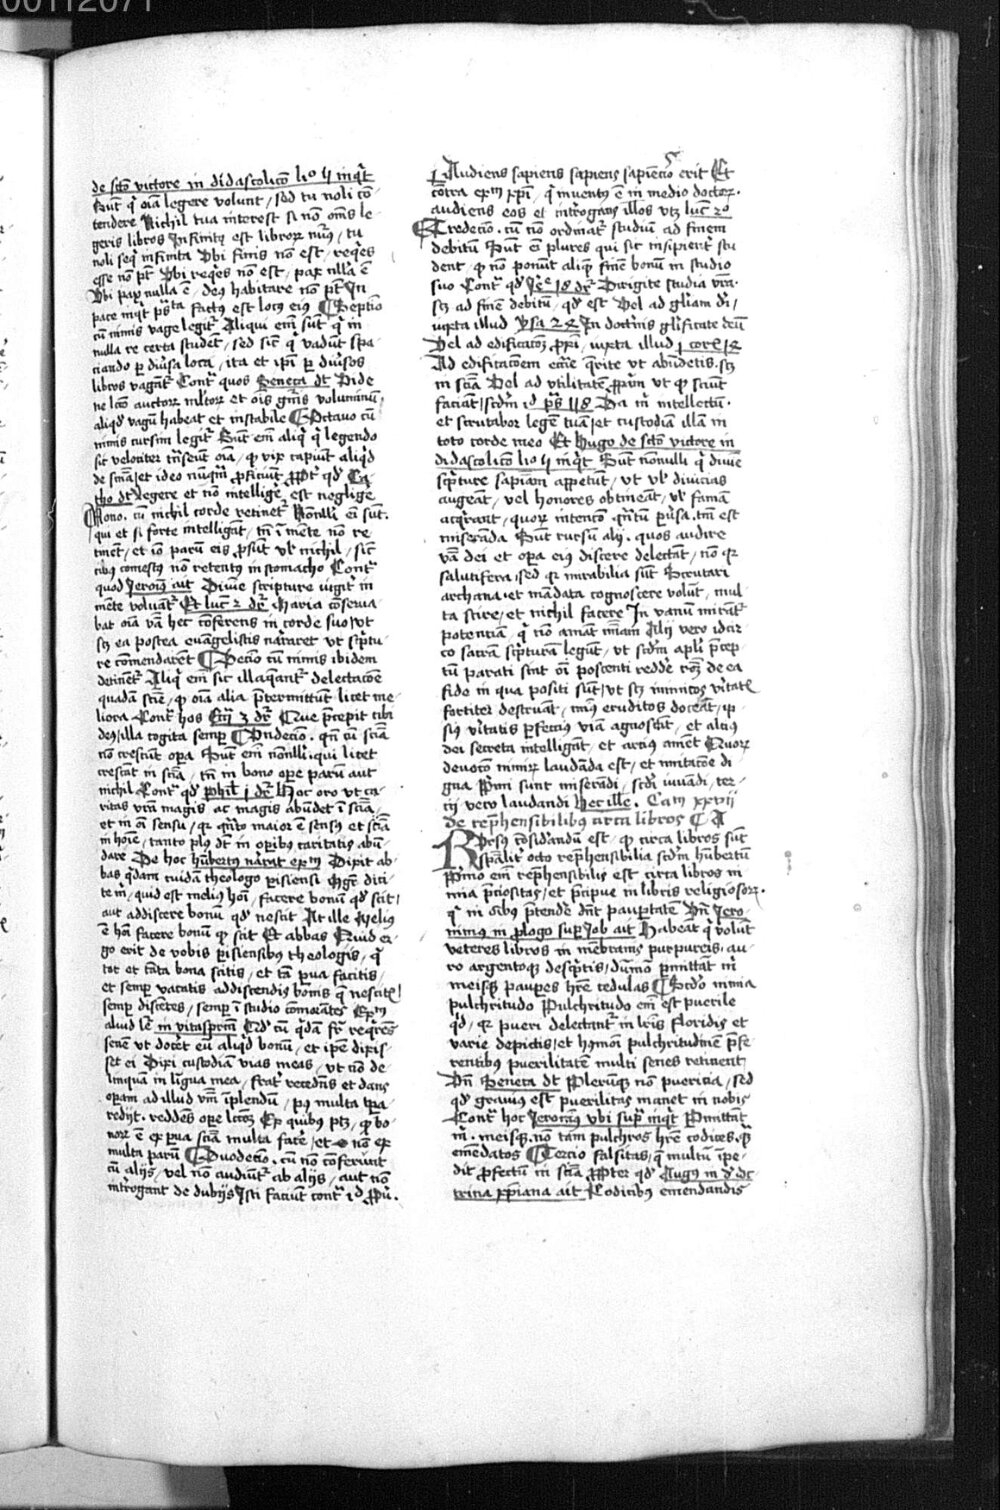 00112071
de scto victore in didascolico lio ij inqt
Sut q oia legere volunt, sed tu noli co-
tendere Nichil tua interest si no oms le-
geris libros Infinitus est libror nus, tu
noli seqi infinita Vbi finis no est, reqes
esse no pt Vbi reqes no est, pax nlla e
Vbi pax nulla e, deus habitare no pt In
pace inqt psta factus est locus eius Septio
cu nimis vage legit Aliqui em sut q in
nulla re certa student, sed sic q vadut spa-
ciando p diusa loca, ita et ipi p diusos
libros vagant Cont quos Seneca dt Vide
ne lco auctor mltor et ois gnis voluminu,
aliqd vagu habeat et instabile Octauo cu
nimis cursim legit Sut em aliq q legendo
sic velociter tnseut oia, q vix capiunt aliqd
de snia et ideo nuqm pficiut ppt qd Ca-
tho dt Legere et no intellige, est neglige
Nono. cu nichil corde retinet Nonlli em sut.
qui et si forte intelligat, tn i mete no re-
tinet, et io paru eis psut vl nichil, sic
cibus comestus no retentus in stomacho Cont
quod Jeronius ait Diuine scripture iugit in
mete voluat Et luc 2 dr Maria coserua-
bat oia va hec coferens in corde suo, vt
scz ea postea euagelistis nararet vt scptu-
re comendaret Decio cu nimis ibidem
detinet Aliq em sic illaqant delectacoe
quada scie, q oia alia ptermittut licet me-
liora Cont hos Ecci 3 dr Que pcepit tibi
deus, illa cogita semp Vndecio. qn cu scia
no crescut opa Sut em nonlli qui licet
crescat in scia, tn in bono ope paru aut
nichil Cont qd phil j dr Hoc oro vt ca-
ritas vra magis ac magis abudet i scia,
et in oi sensu, qr qnto maior e sensus et scia
in hoie, tanto plus dt in opibus caritatis abu-
dare De hoc hubertus narat exm Dixit ab-
bas qdam cuidam theologo parisiensi Mgr dici-
te m, quid est melius hoi, facere bonu qd scit,
aut addiscere bonu qd nescit At ille Melius
e hoi facere bonu qd scit Et abbas Quid er-
go erit de vobis parisiensibus theologis, q
tot et tata bona scitis, et ta pua facitis,
et semp vacatis addiscendis bonis q nescitis
semp discetes, semp i studio comorates Exm
aliud le in vitaspatrm Qd cu qda fr reqres
sene vt docet eu aliqd bonu, et ipe dixis-
set ei Dixi custodiam vias meas, vt no de-
linqua in ligua mea, frat recedens et dans
opam ad illud vnu iplendu, pus multa tpa
redijt. reddes ope lcoes Ex quibus ptz, q bo-
nor e ex pua scia multa face, et no ex
multa paru Duodecio. cu no conferut
cu alijs, vel no audiut ab alijs, aut no
introgant de dubijs Isti faciut cont id ppu.
Audiens sapiens sapiens sapiecio erit Et
cotra exm xpi, q inuentus e in medio doctor.
audiens eos et introgans illos vtz luc 2o
Tredecio. cu no ordinat studiu ad finem
debitu Sut em plures qui sic insipient stu-
dent, q no ponut aliq fine bonu in studio
suo Cont qd Jer 18 dr Dirigite studia vra.
scz ad fine debitu, qd est Vel ad gliam di,
iuxta illud ysa 24 In doctinis glificate deu
Vel ad edificatoe pxi, iuxta illud j cor 14
Ad edificatoem eccie qrite vt abudetis. scz
in scia Vel ad vtilitate ppam vt qd sciut
faciat, scdm id ps 118 Da m intellectu.
et scrutabor lege tua, et custodia illa in
toto corde meo Et hugo de scto victore in
didascolico lio ij inqt Sut nonnulli q diuine
scpture sapiam appetut, vt vl diuicias
augeant, vel honores obtineat, vl fama
acqrant, quor intenco qntu puisa. tm est
miseranda Sut rursu alij. quos audire
va dei et opa eius discere delectat, no qr
salutifera, sed qr mirabilia sut Scrutari
archana, et madata cognoscere volut, mul-
ta scire, et nichil facere In vanu mirat
potentia, q no amat miam Alij vero idcir-
co sacra scptura legut, vt scdm apli pcep-
tu parati sint oi poscenti redde roe de ea
fide in qua positi sut, vt scz inimicos vitatis
fortiter destruat, min eruditos doceat, ip-
sius vitatis pfectius via agnoscat, et altius
dei secreta intelligat, et arcius amet Quor
deuoco nimir laudada est, et imitacoe di-
gna Primi sunt miseradi, scdi iuuadi, ter-
cij vero laudandi Hec ille. Cam xxvij
de rephensibilibus circa libros
Rursus cosidandu est, q circa libros sut
spalit octo rephensibilia scdm hubertu
Primo em rephensibilis est circa libros ni-
mia pciositas, et pcipue in libris religiosor.
q in oibus ptende dnt paupertate Vn Jero-
nimus in plogo sup Job ait Habeat q volut
veteres libros in mebranis purpureis. au-
ro argentoq descptis, dumo pmittat m
meisq paupes hre cedulas Scdo nimia
pulchritudo Pulchritudo em est puerile
qd, qr pueri delectant in lris floridis et
varie depictis, et hmoi pulchritudine pfe-
rentibus puerilitate multi senes retinent
Vn Seneca dt Pleruq no puericia, sed
qd grauius est puerilitas manet in nobis
Cont hoc Jeronius vbi sup inqt Pmittat
m. meisq. no tam pulchros hre codices, q
emedatos Tercio falsitas, q multu ipe-
dit pfectu in scia Ppter qd Augus in d dc-
trina xpiana ait Codicibus emendandis